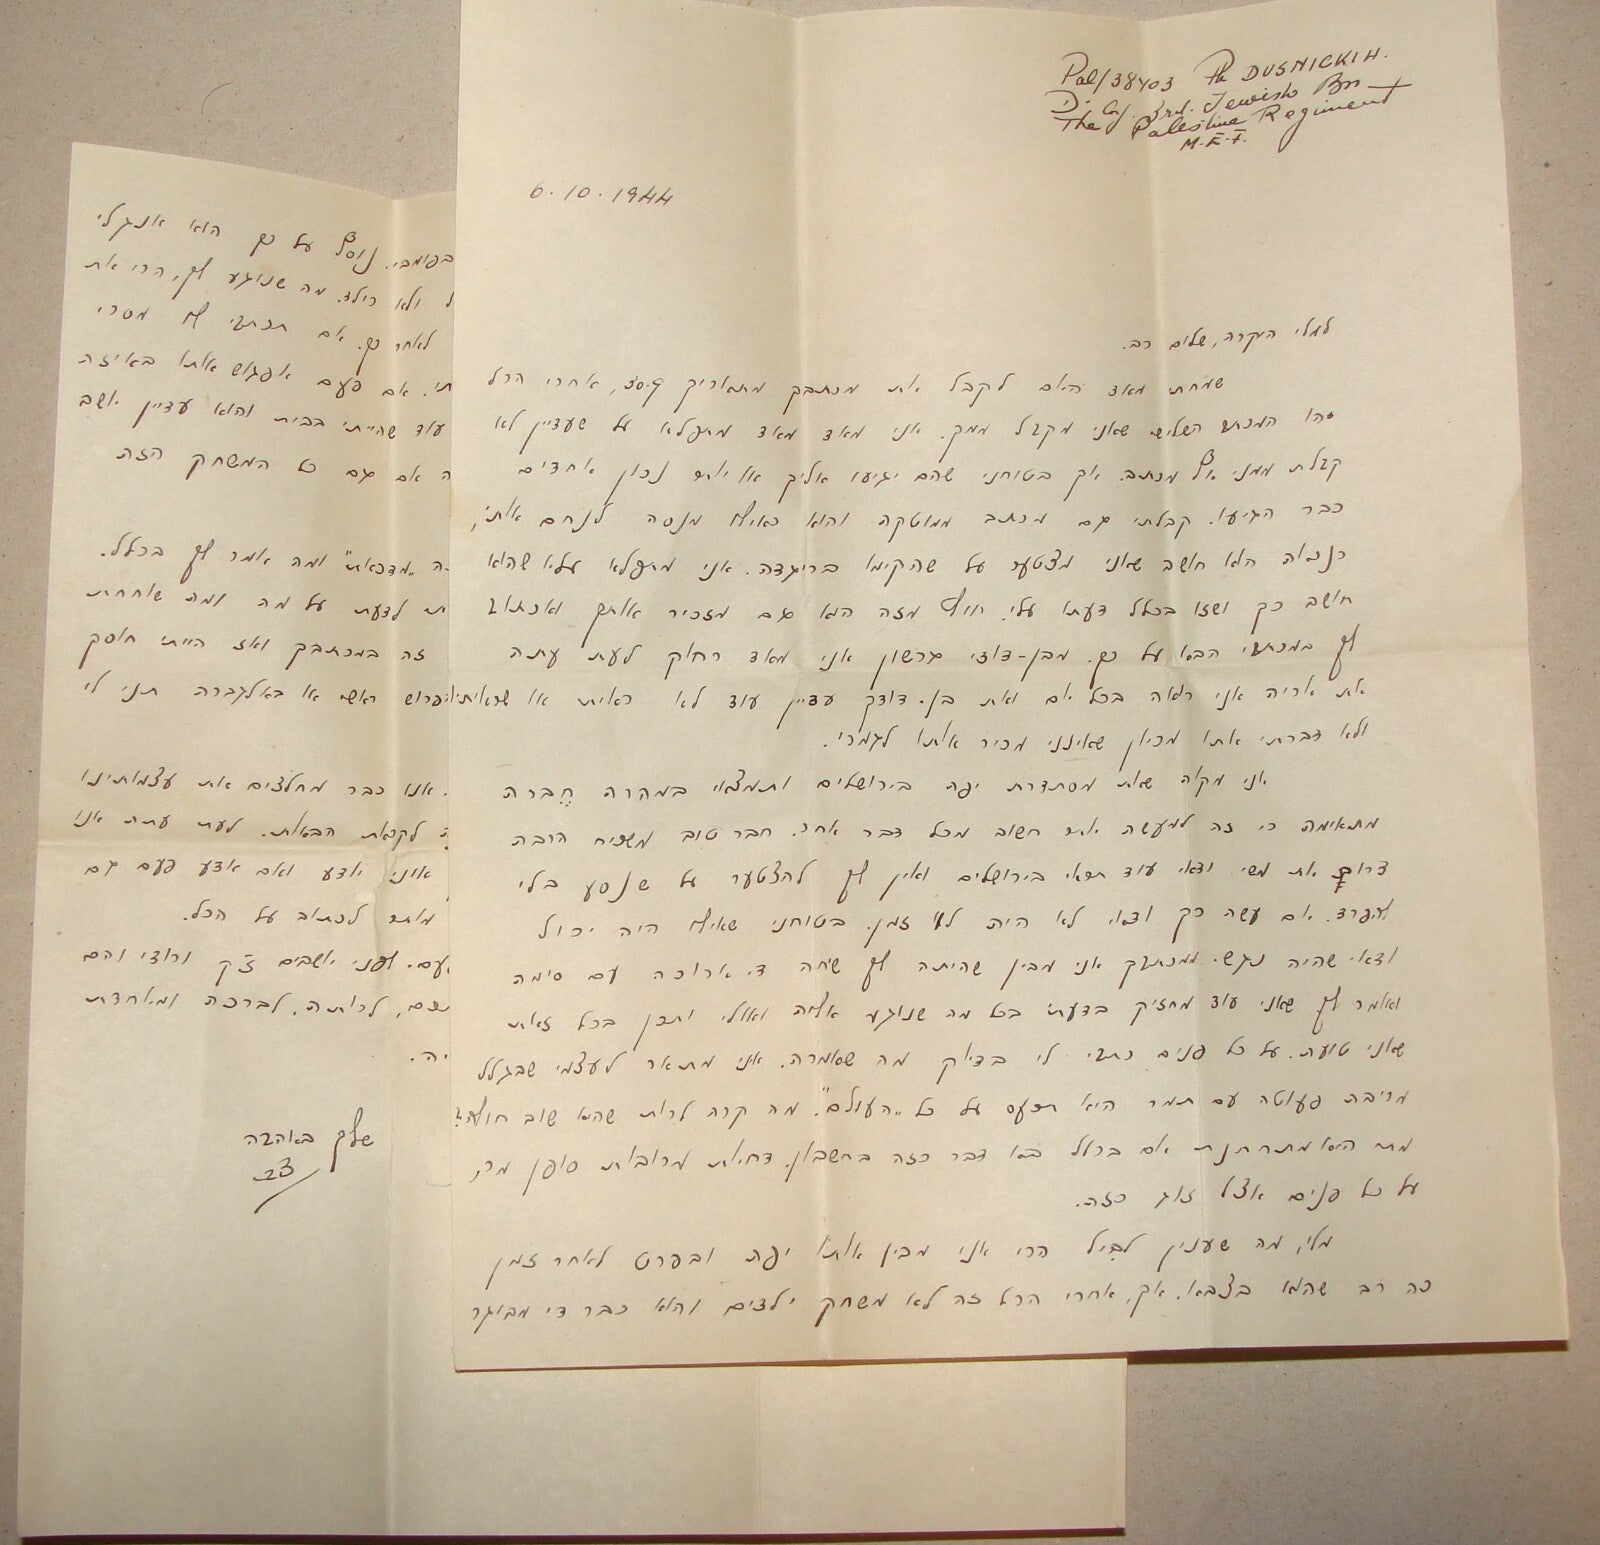 Pal/38403 Pte DUSNICKI H.
D. Coy. 3rd. Jewish Bn
The Palestine Regiment
M.E.F.
6.10.1944
למלי היקרה, שלום רב.
שמחתי מאד היום לקבל את מכתבך מתאריך אחרי הכל
זהו המכתב השלישי שאני מקבל ממך. אני מאד מאד מתפלא על שעדיין לא
קבלת ממני אף מכתב. אך בטוחני שהם יגיעו אליך או יותר נכון אחדים
כבר הגיעו. קבלתי גם מכתב ממוטקה והוא כאילו מנסה לנחם אותי,
כנראה הוא חושב שאני מצטער על שהקימו בריגדה. אני מתפלא עליו שהוא
חושב כך ושזו בכלל דעתו עלי. חוץ מזה הוא גם מזכיר אותך ואכתוב
לך במכתבי הבא על כך. מבן-דודי גרשון אני מאד רחוק לעת עתה
את אריה אני רואה בכל יום ואת בן-דודך עדיין עוד לא ראיתי או שראיתי
ולא דברתי אתו מכיון שאינני מכיר אותו לגמרי.
אני מקוה שאת מסתדרת יפה בירושלים ותמצאי במהרה חֶברה
מתאימה כי זה למעשה יותר חשוב מכל דבר אחר. חבר טוב משכיח הרבה
דרוך את משי ודאי עוד תראי בירושלים ואין לך להצטער על שנסע בלי
להפרד. אם עשה כך ודאי לא היה לו זמן. בטוחני שאילו היה יכול
ודאי שהיה נגש. ממכתבך אני מבין שהיתה לך שיחה די ארוכה עם סימה
ואומר לך שאני עוד מחזיק בדעתי בכל מה שנוגע אליה ואולי יתכן בכל זאת
שאני טועה. על כל פנים כתבי לי בדיוק מה שאמרה. אני מתאר לעצמי שבגלל
מריבה פעוטה עם תמר היא תכעס על כל "העולם". מה קרה לרות שהיא שוב חולה?
מתי היא מתחתנת אם בכלל בא דבר כזה בחשבון. דחיות מרובות סופן מר,
על כל פנים אצל זוג כזה.
מלי, מה שענין לבִיל הרי אני מבין אותו יפה ובפרט לאחר זמן
כה רב שהוא בצבא. אך, אחרי הכל זה לא משחק ילדים והוא כבר די מבוגר
נוסף על כך הוא אנגלי
ולא מה שנוגע לך, הרי את
לאחר כך. אם תכתבי לו מסרי
אם פעם אפגוש אותו באיזה
עוד שהייתי בבית והוא עדיין יושב
אם גם כל המשחק הזה
ומה אמר לך בכלל.
לדעת על מה ומה שוחחת
זה במכתבך ואז הייתי חוסך
פירוש ראשי או באלגברה תני לי
אנו כבר מחלצים את עצמותינו
לקראת הבאות. לעת עתה אנו
אינני יודע ואם אדע פעם גם
מותר לכתוב על הכל.
לפני יושבים צ'ק ורודי והם
לרותה, לברכה ומיוחדת
שלך באהבה
צבי